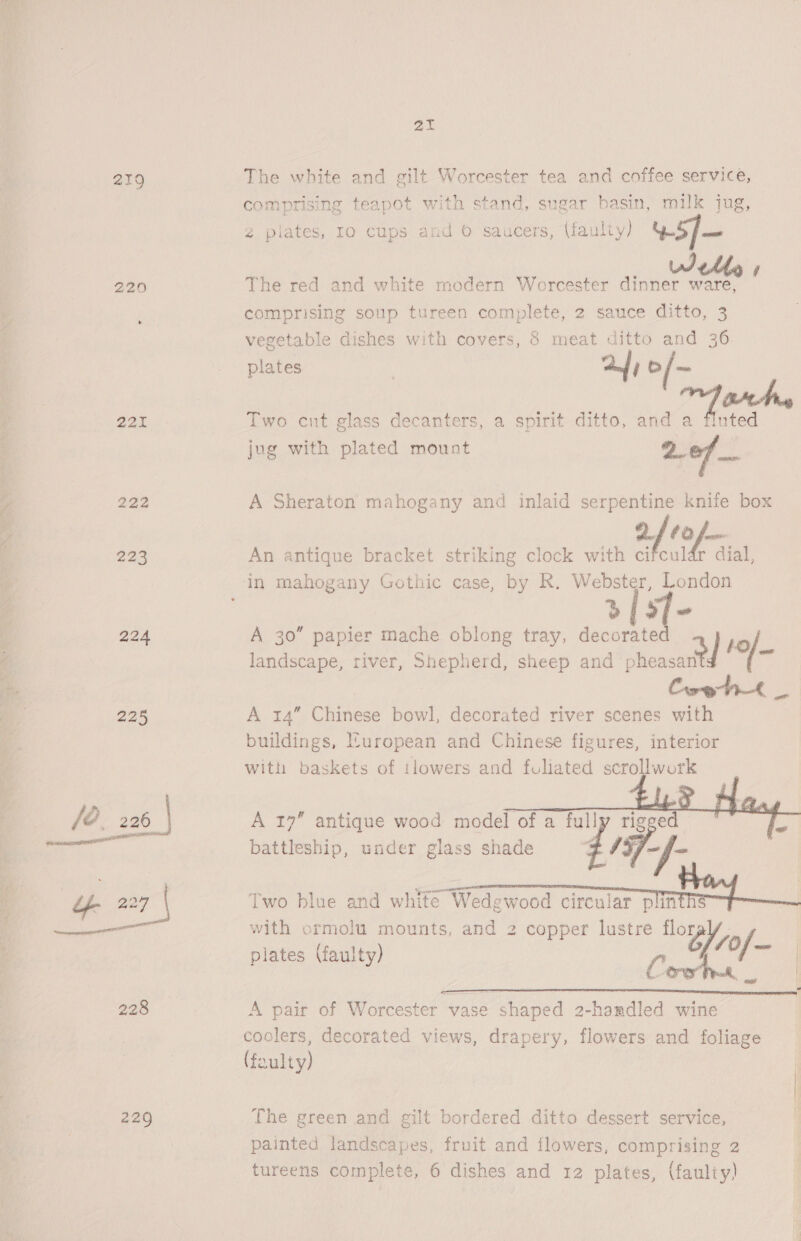 21
219 The white and gilt Worcester tea and coffee service,
comprising teapot with stand, sugar basin, milk jug,
2 plates, 10 cups and 6 saucers, (faulty) 45/-
Wells
220 The red and white modern Worcester dinner ware,
comprising soup tureen complete, 2 sauce ditto, 3
vegetable dishes with covers, 8 meat ditto and 36
plates
221 Two cut glass decanters, a spirit ditto, and a fluted
jug with plated mount
222 A Sheraton mahogany and inlaid serpentine knife box
2/10/-
223 An antique bracket striking clock with circular dial,
in mahogany Gothic case, by R. Webster, London
3/5/-
224 A 30" papier mache oblong tray, decorated
landscape, river, Shepherd, sheep and pheasants 10/-
225 A 14" Chinese bowl, decorated river scenes with
buildings, European and Chinese figures, interior
with baskets of flowers and foliated scrollwork
Hay
10. 226 A 17" antique wood model of a fully rigged
battleship, under glass shade
Hay
227 Two blue and white Wedgwood circular plinths
with ormolu mounts, and 2 copper lustre floral
plates (faulty) 10/-
228 A pair of Worcester vase shaped 2-handled wine
coolers, decorated views, drapery, flowers and foliage
(faulty)
229 The green and gilt bordered ditto dessert service,
painted landscapes, fruit and flowers, comprising 2
tureens complete, 6 dishes and 12 plates, (faulty)